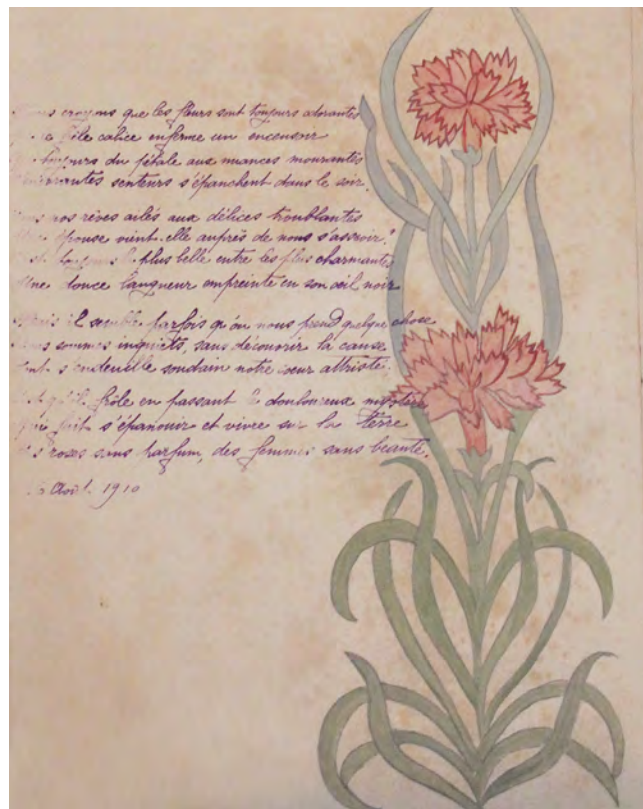 croyons que les fleurs sont toujours odorantes
calice enferme un encensoir
toujours du pétale aux nuances mourantes
senteurs s'épanchent dans le soir.
nos rêves ailés aux délices troublantes
épouse vient-elle auprès de nous s'asseoir?
toujours la plus belle entre les plus charmantes
Une douce langueur empreinte en son œil noir
Mais il semble parfois qu'on nous prend quelque chose
sommes inquiets, sans découvrir la cause
s'endeuille soudain notre cœur attristé.
frôle en passant le douloureux mystère
Qui fait s'épanouir et vivre sur la terre
roses sans parfum, des femmes sans beauté.
Août 1910